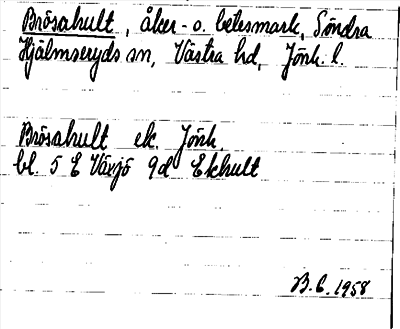 Brösahult, åker- o. betesmark, Söndra
Hjälmseryds sn, Västra hd, Jönk. l.
Brösahult ek. Jönk.
bl. 5 E Växjö 9d Ekhult
B.E. 1958